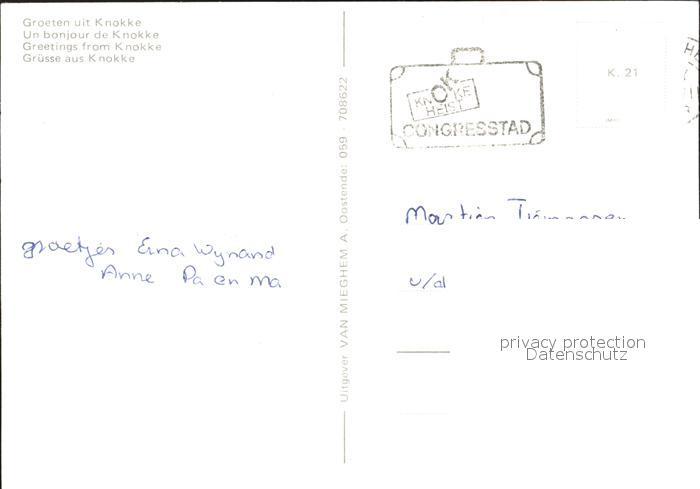 Groeten uit Knokke
Un bonjour de Knokke
Greetings from Knokke
Grüsse aus Knokke
groetjes Wynand
Anne Pa en Ma
Uitgever VAN MIEGHEM A. Oostende: 059 - 708622
OK
KNOKKE
HEIST
CONGRESSTAD
K. 21
u/d
privacy protection
Datenschutz